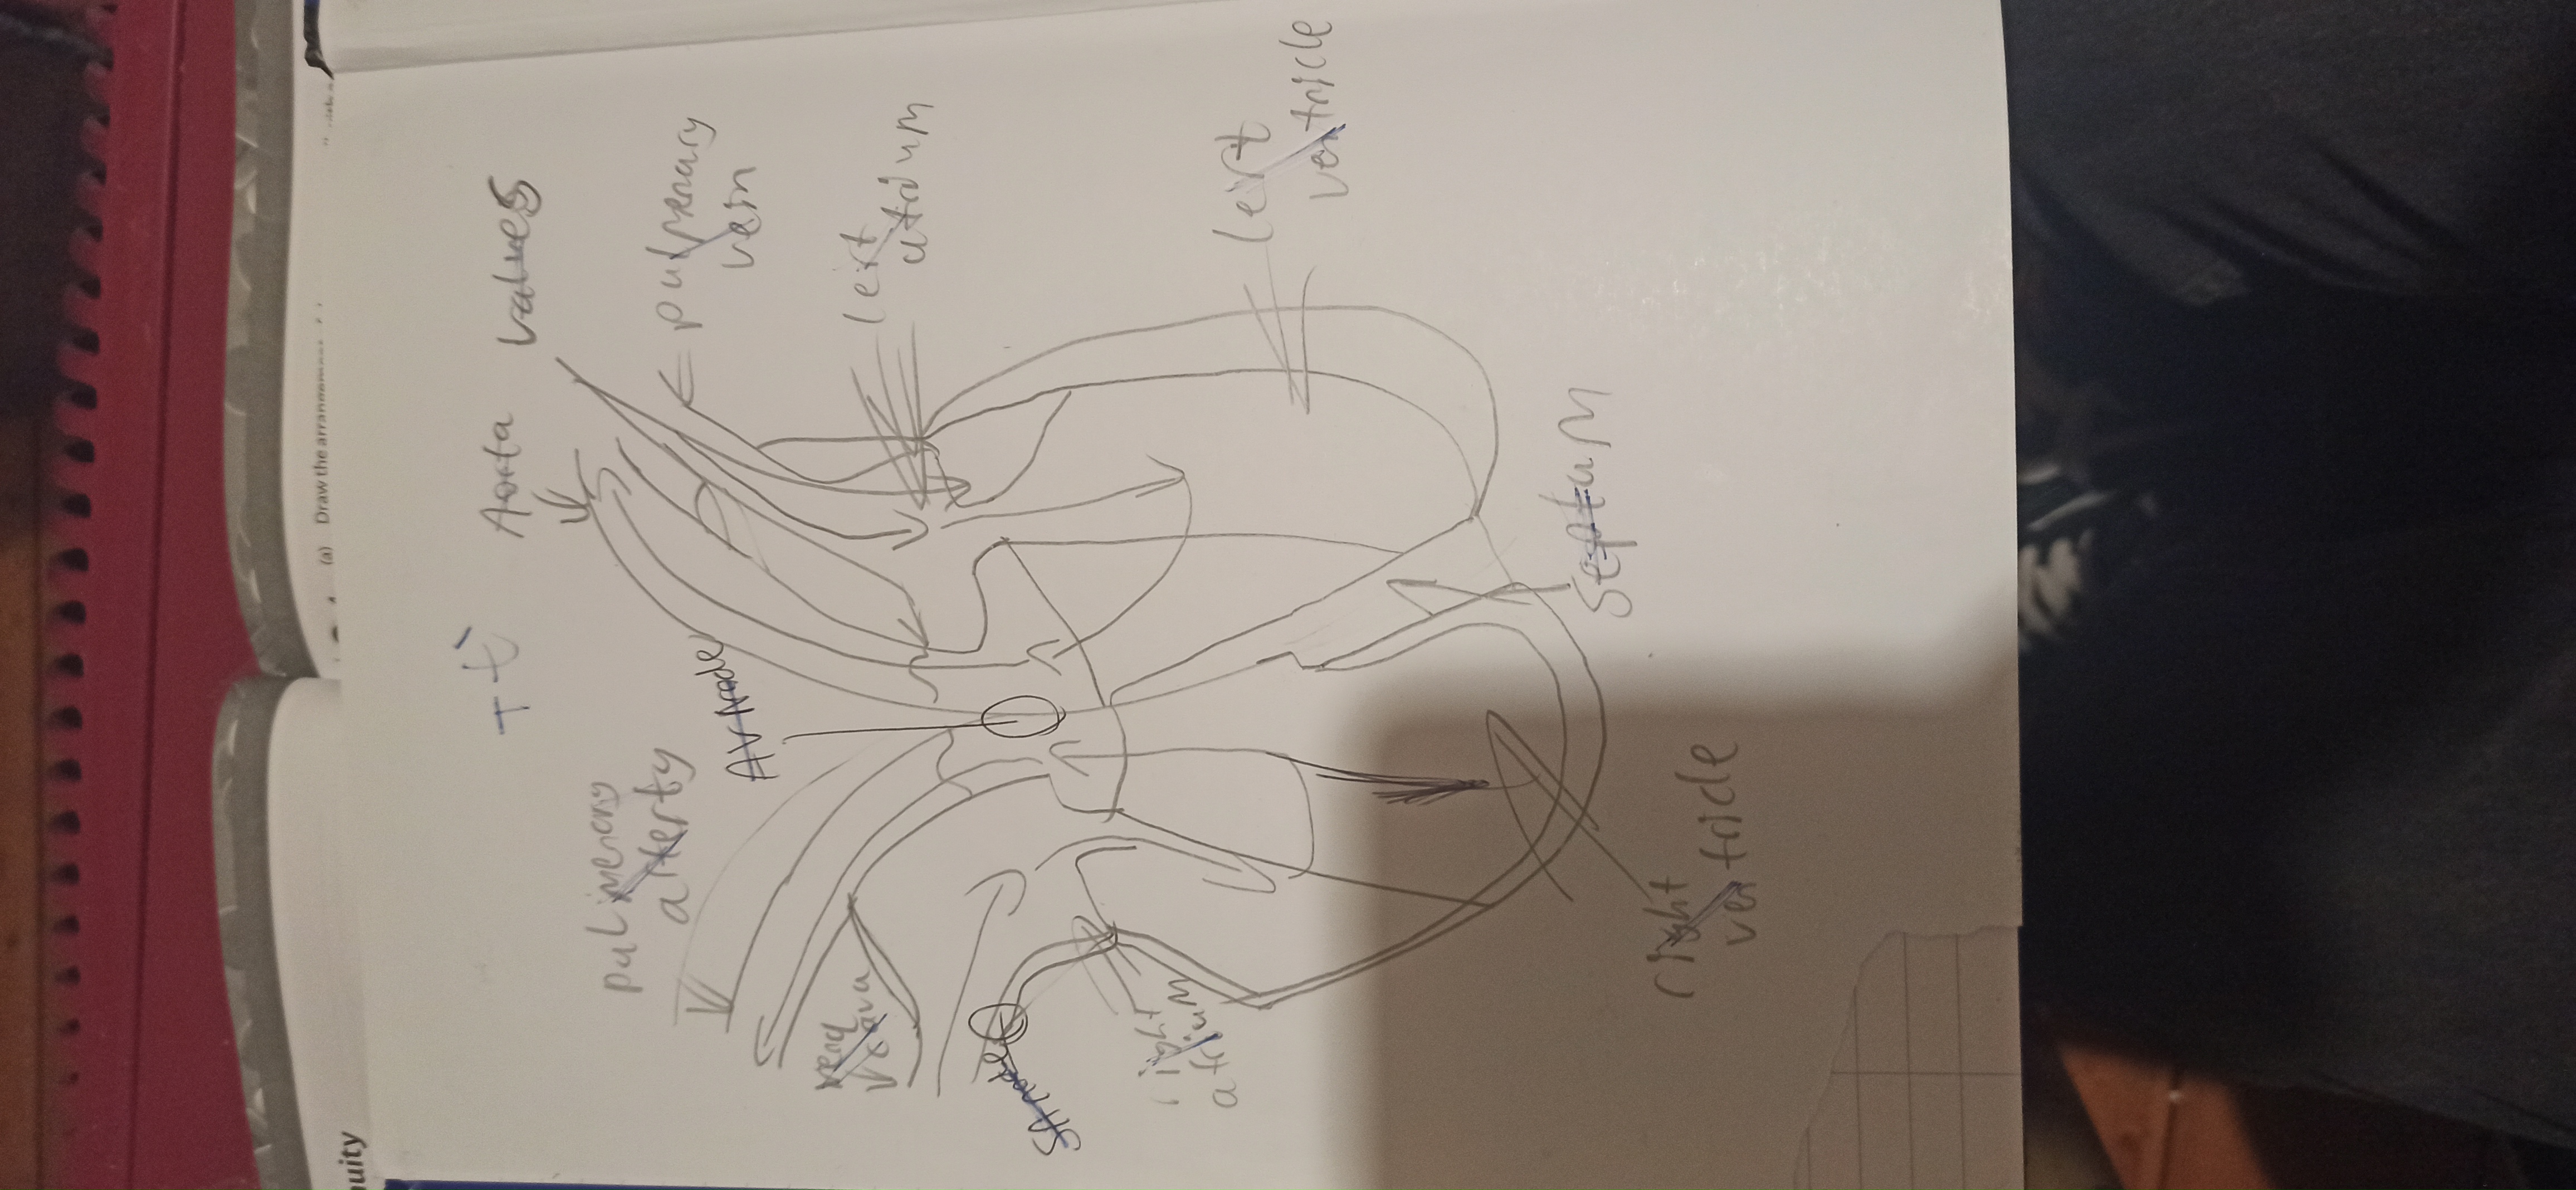 nuity
(a) Draw the
Aorta
valves
pulmenory
arterty
pulmenary
vein
AV Node
vena
cava
left
atrium
SA node
right
atrium
left
ventricle
septum
right
ventricle